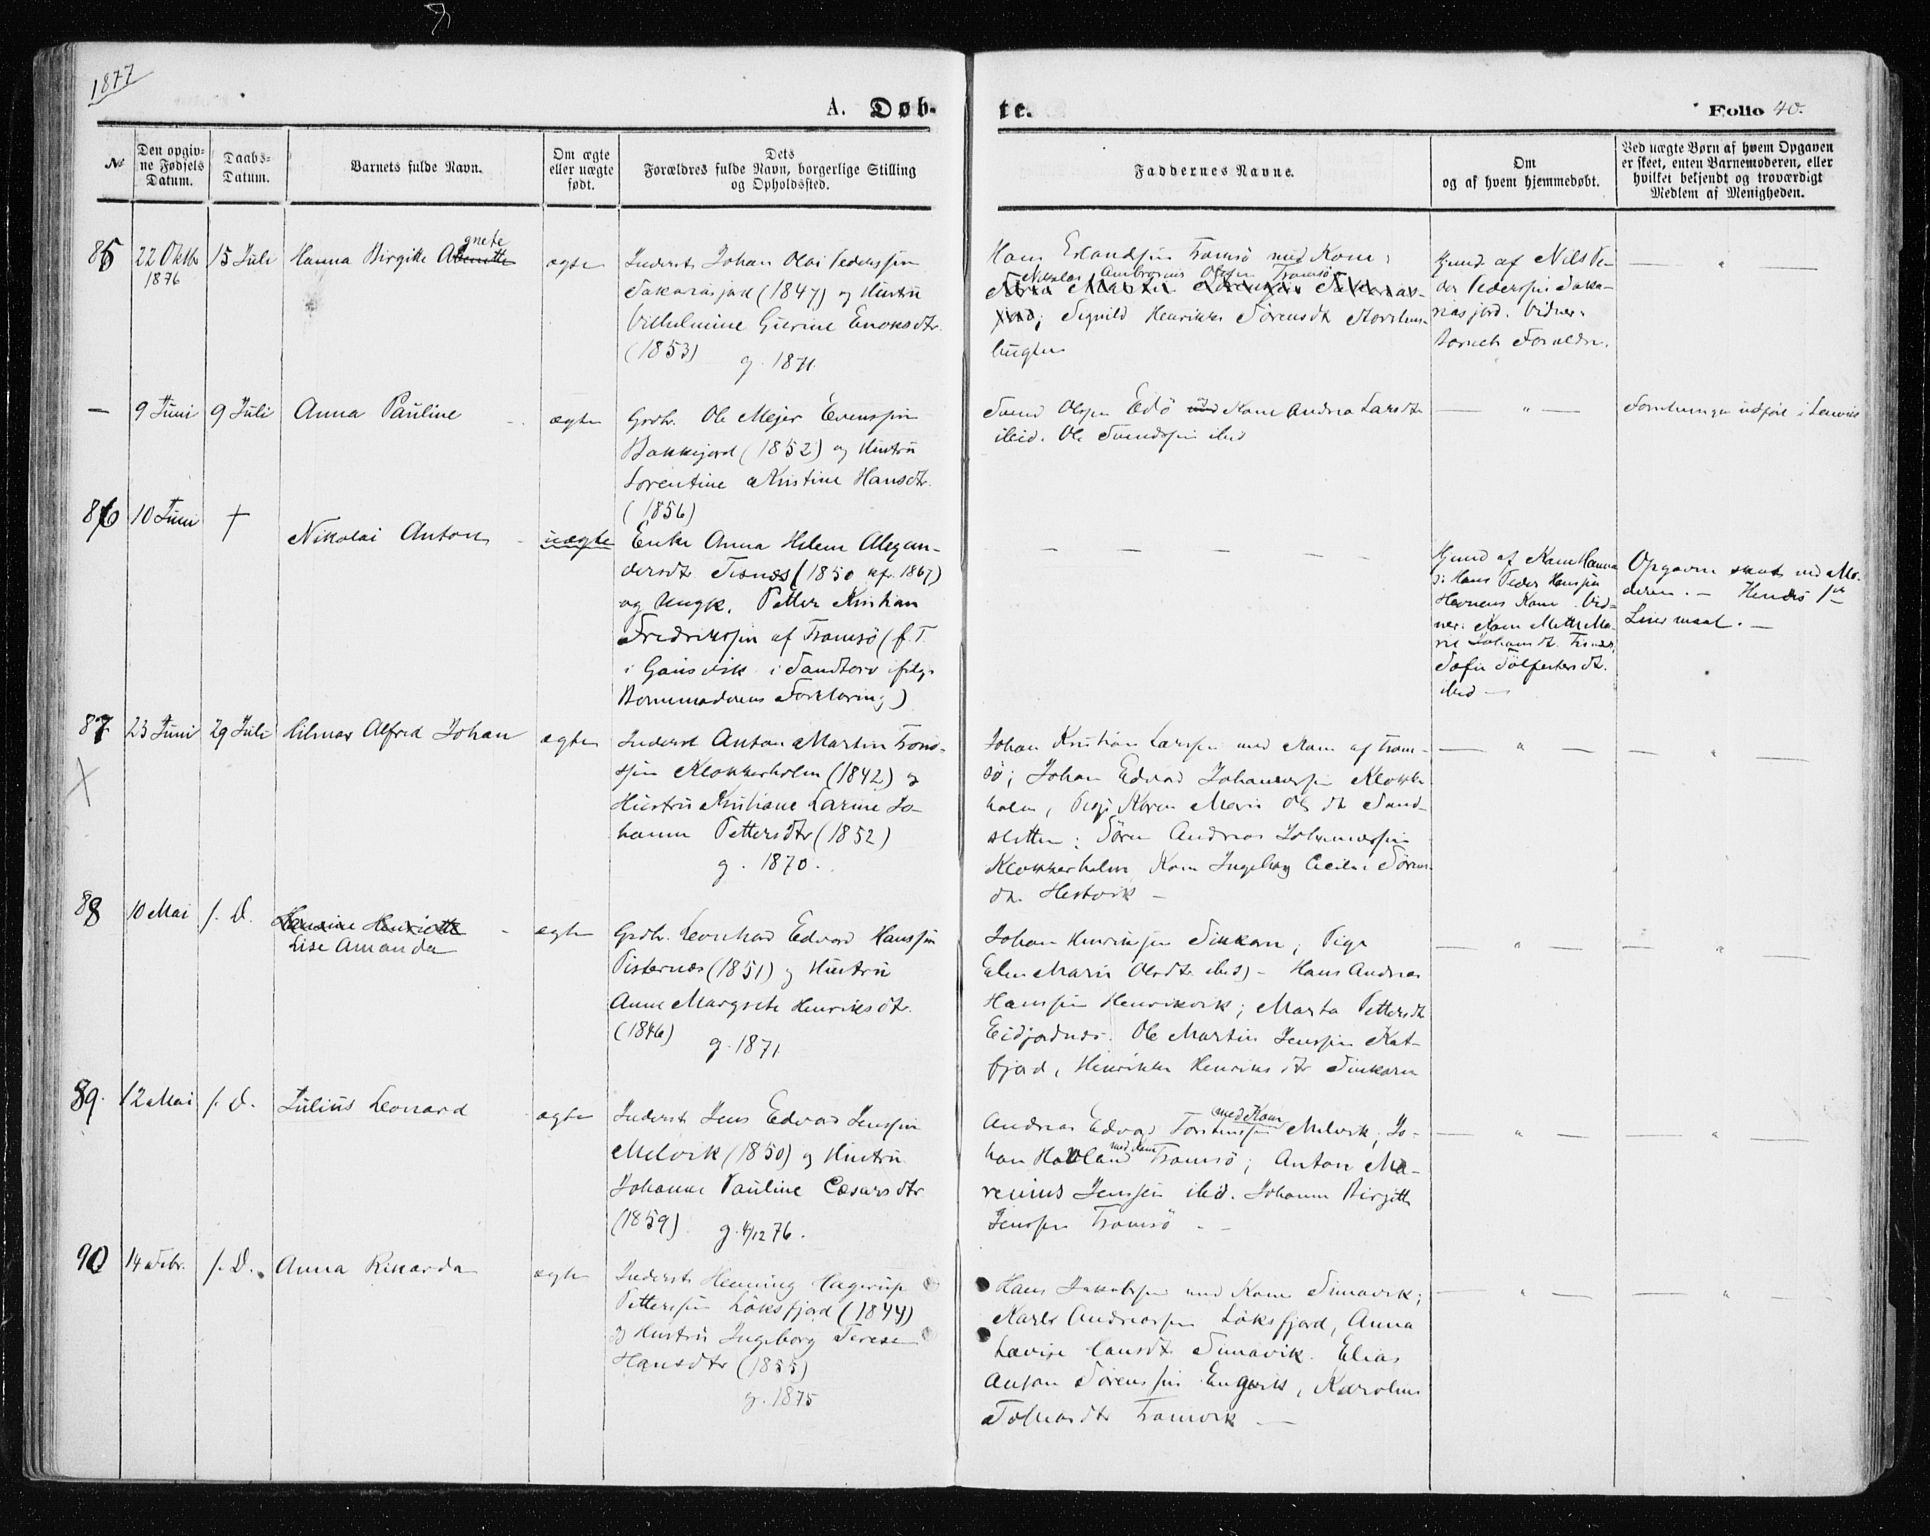 1877
A. Døb-
te.
Folio 40.
No
Den opgiv-
ne Fødsels
Datum.
Daabs-
Datum.
Barnets fulde Navn.
Om ægte
eller uægte
født.
Dets
Forældres fulde Navn, borgerlige Stilling
og Opholdssted.
Faddernes Navne.
Om
og af hvem hjemmedøbt.
Ved uægte Børn af hvem Opgaven
er skeet, enten Barnemoderen, eller
hvilket bekjendt og troværdigt
Medlem af Menigheden.
85
22 Oktbr
1876
15 Juli
Hanna Birgitte
gnete
ægte
Inderst Johan Olai Pederssen
(1847) og Hustru
Vilhelmine Enoksdtr.
(1853) g. 1871.
Hans Erlandssen Tromsö med Kone;
Nikolas Ambrosius Olssen Tromsö
Henrikke Sörensdt
bugten
Hjemd af Nils Pe-
der Pederssen
Vidner:
Barnets Foreldre.
— " —
—
9 Juni
9 Juli
Anna Pauline
ægte
Grdbr. Ole Mejer Evenssen
Bakkejord (1852) og Hustru
Lorentine Kristine Hansdtr.
(1856)
Svend Olssen Edö med Kone Andrea Larsdtr
ibid. Ole Svendssen ibid
— " —
i Lenvik
86
10 Juni
†
Nikolai Anton
uægte
Enke Anna Helene Alexan-
dersdtr Tisnes (1850 kf. 1867)
og Ungk. Petter Kristian
Fredrikssen af Tromsö (f. T.
i Gausvik i Sandtorv ifølge
Barnemoderens Forklaring)
— — — — —
Hjemd af Kone Hanna
Hans Peder Hanssen
Kone. Vid-
ner: Kone Mette Ma-
rie Johansdt. Tisnes,
Sofie
ibid —
Opgaven skeet ved Mo-
deren. — Hendes 1ste
Leiermaal. —
87
23 Juni
29 Juli
Hilmar Alfred Johan
ægte
Inderst Anton Martin Tøns-
sen Klokkerholm (1842) og
Hustru Kristiane Larine Jo-
hanna Pettersdtr (1852)
g. 1870.
Johan Kristian Larssen med Kone af Trom-
sö; Johan Edvard Johannessen Klokker-
holm, Pige Karen Marie Ols dtr Sand-
sletten; Sören Andreas Johannessen
Klokkerholm, Kone Ingeborg Cecilie Sörens-
dtr. Hestvik —
— " — —
— " —
88
10 Mai
s. D.
Henrine Henriette
Lise Amanda
ægte
Grdbr. Leonhard Edvard Hanssen
Pisternes (1851) og Hustru
Anne Margrete Henriksdtr.
(1846) g. 1871
Johan Henrikssen Sinkarn; Pige
Elen Marie Olsdtr ibid) — Hans Andreas
Hanssen Henrikvik; Marta Pettersdtr
Eidjordnes. Ole Martin Jenssen Kat-
fjord, Henrikke Henriksdtr Sinkarn
— " — —
— " —
89.
12 Mai
s. D.
Julius Leonard
ægte
Inderst Jens Edvard Jenssen
Melvik (1850) og Hustru
Johanne Pauline Cæsarsdtr
(1859) g. 4/12 76.
med Kone
Andreas Edvard Torstenssen Melvik; Jo-
med Kone
han Hovland Tromsö; Anton Ma-
renius Jenssen ibid. Johanna Birgitte
Jenssen Tromsö —
— " — —
— " —
90
14 Febr.
s. D.
Anna Rikarda
ægte
Inderst Henning Hagerup
Petterssen Löksfjord (1844)
og Hustru Ingeborg Terese
Hansdtr (1855)
g. 1875
Hans Jakobssen med Kone Simavik;
Karl Andreassen Löksfjord, Anna
Lovise Hansdtr Simavik. Elias
Anton Sörenssen Engvik, Karoline
Tomasdtr Tromvik —
— " — —
— " —